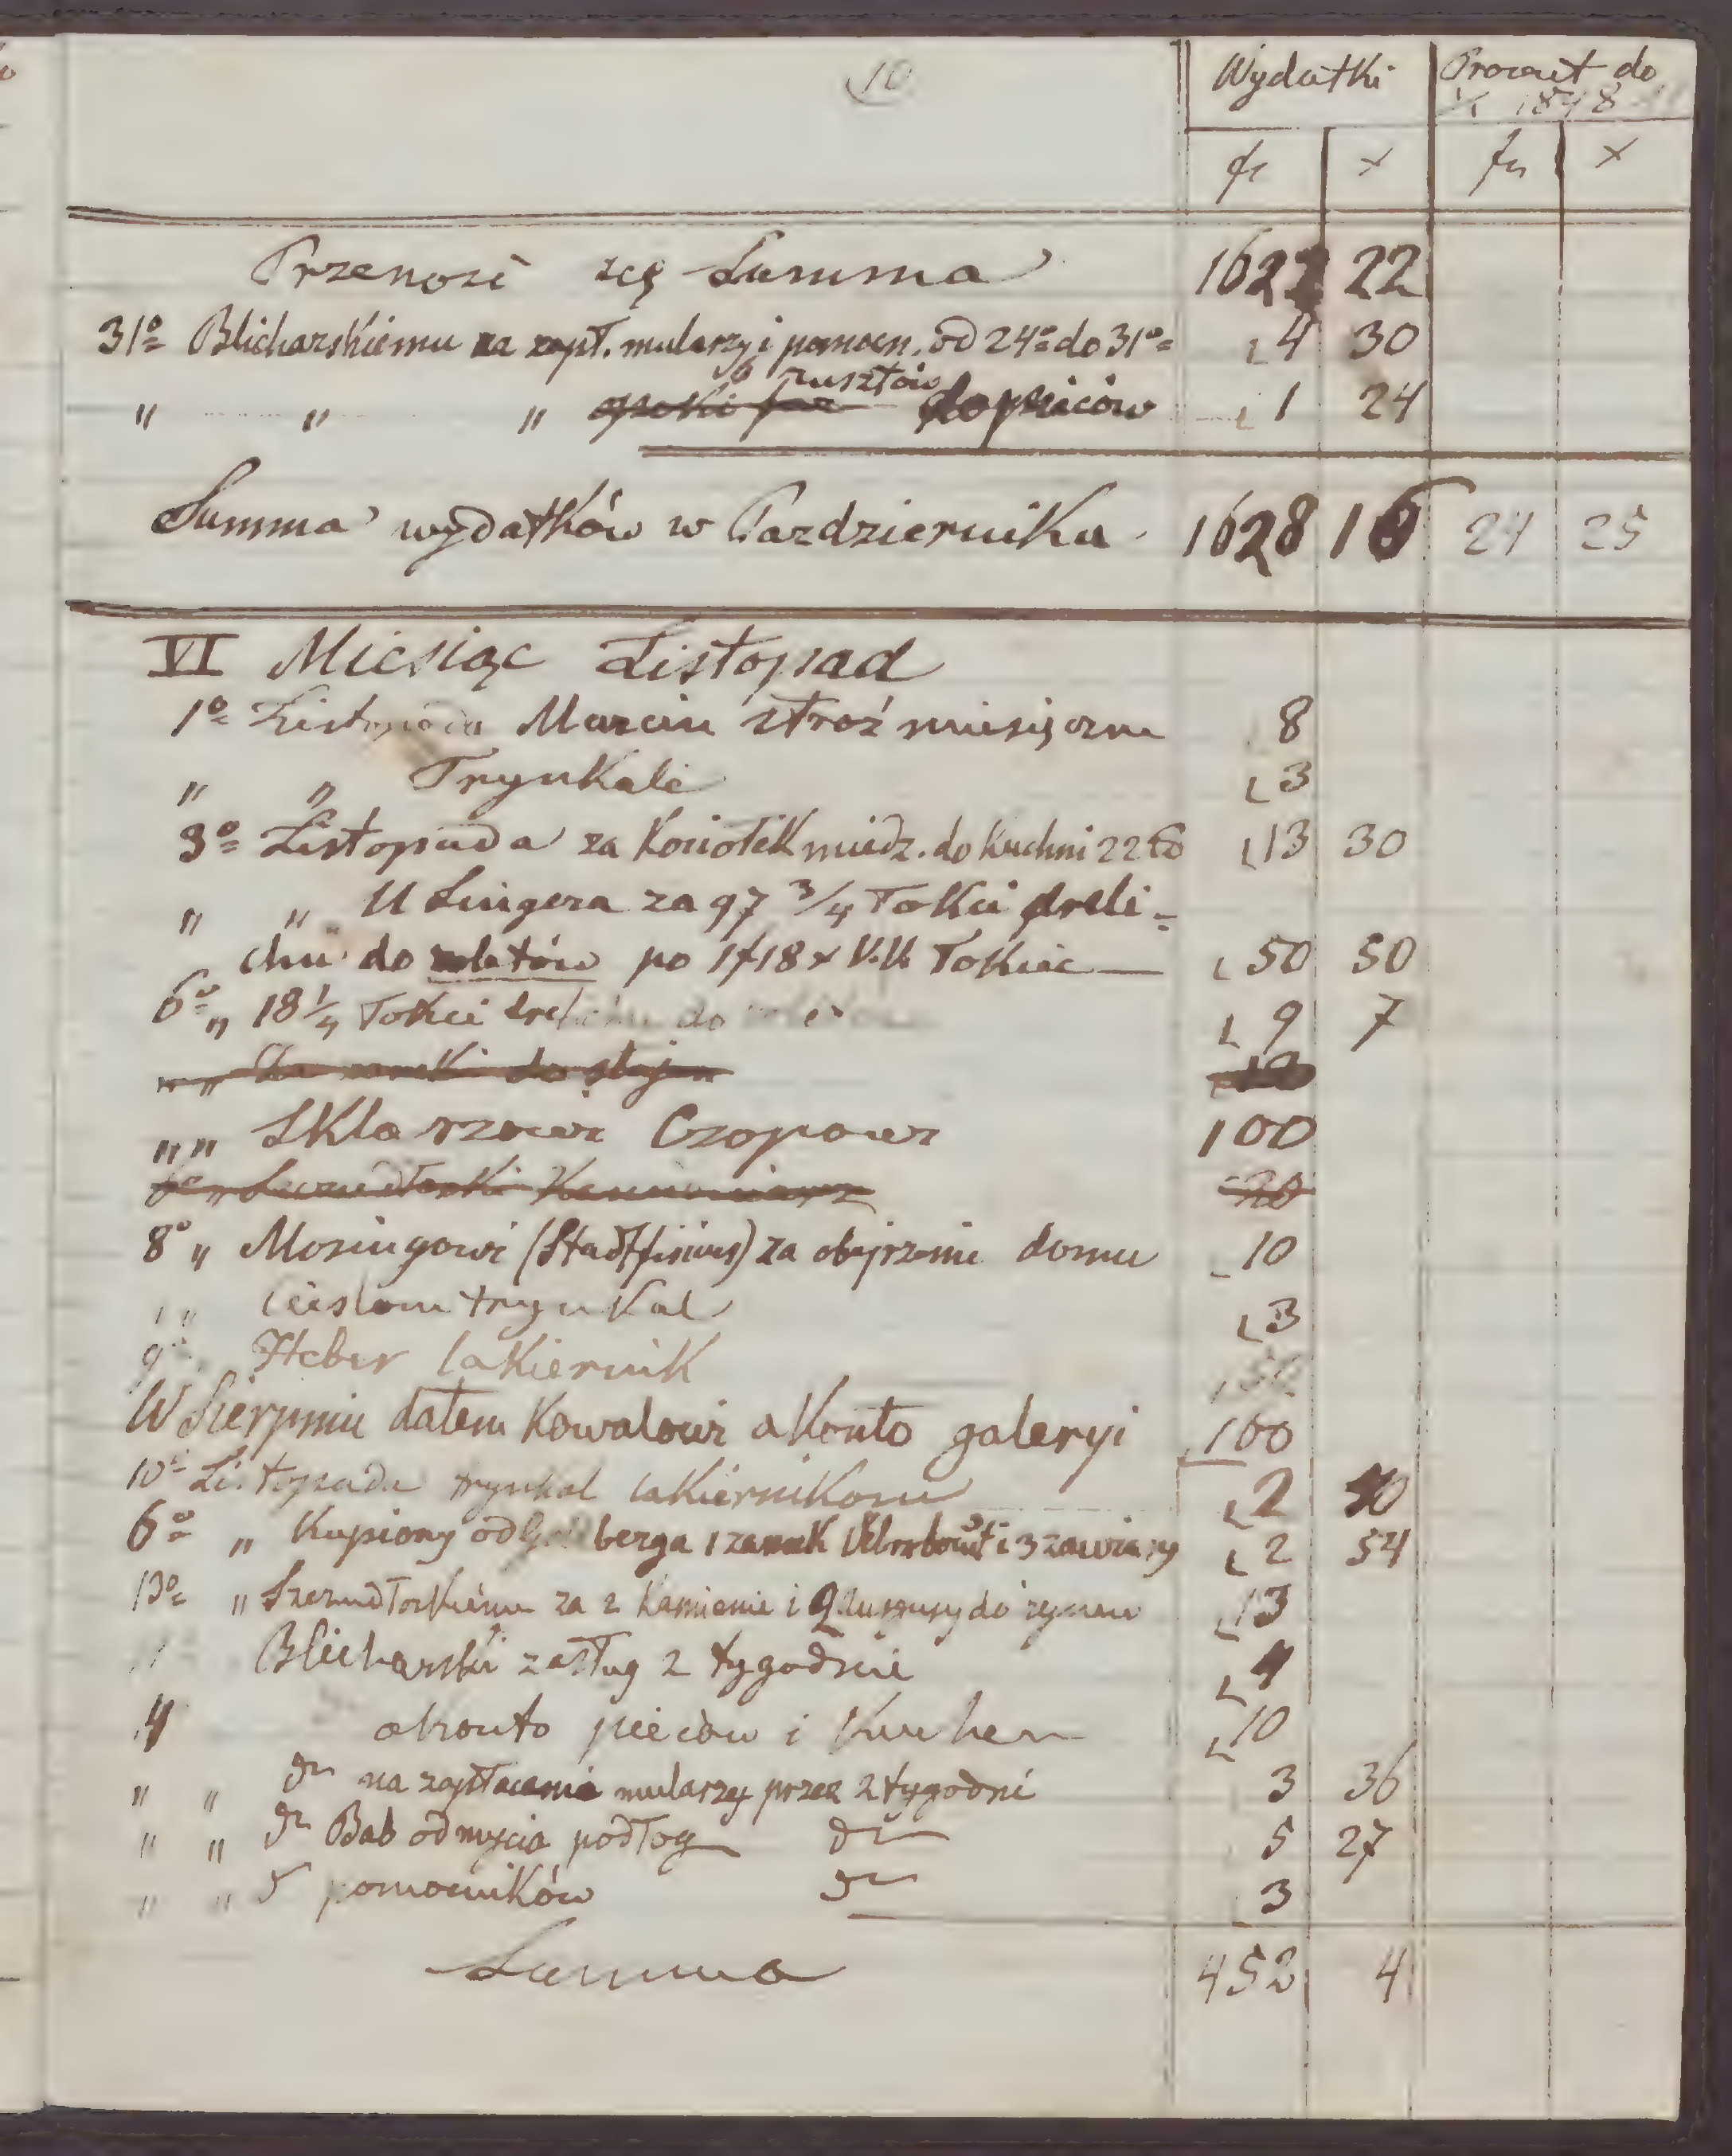 10
Wydatki Procent do
1848
fr x fr x
Przenosi się Summa 1622 22
31º Blicharskiemu na zapł. mularzy i pomocn. od 24º do 31º 4 30
" " " rusztów do pieców 1 24
Summa wydatków w Pazdzierniku 1628 16 24 25
VI Miesiąc Listopad
1º Listopada Marcin stroż miesięczne 8
" " Trynkale 3
3º Listopada za Kociołek miedz. do Kuchni 22 13 30
" " U Singera za 97 3/4 Tokci dreli=
chu do roletów po 1f 18x V.V. Tokiec — 50 50
6º " 18 1/4 Tokci drelichu do 9 7
" " do stajen
" " Sklarzowi Czopowi 100
20
8º " Mosingowi (Stadtfisicus) za obejrzenie domu 10
" " Cieslom trynkal 3
9º Heber lakiernik
W Sierpniu dałem Kowalowi a Konto galeryi 100
10º Listopada trynkal lakiernikom 2
6º " Kupiony od berga 1 zamek i 3 zawiasy 2 54
13º " za 2 Kamienie i 2 do 13
Blicharski zasług 2 tygodnie 4
a konto pieców i Kuchen 10
" " dto na zapłacenie mularzy przez 2 tygodni 3 36
" " dto Bab od mycia podłog dto 5 27
" " dto pomocników dto 3
Summa 452 4